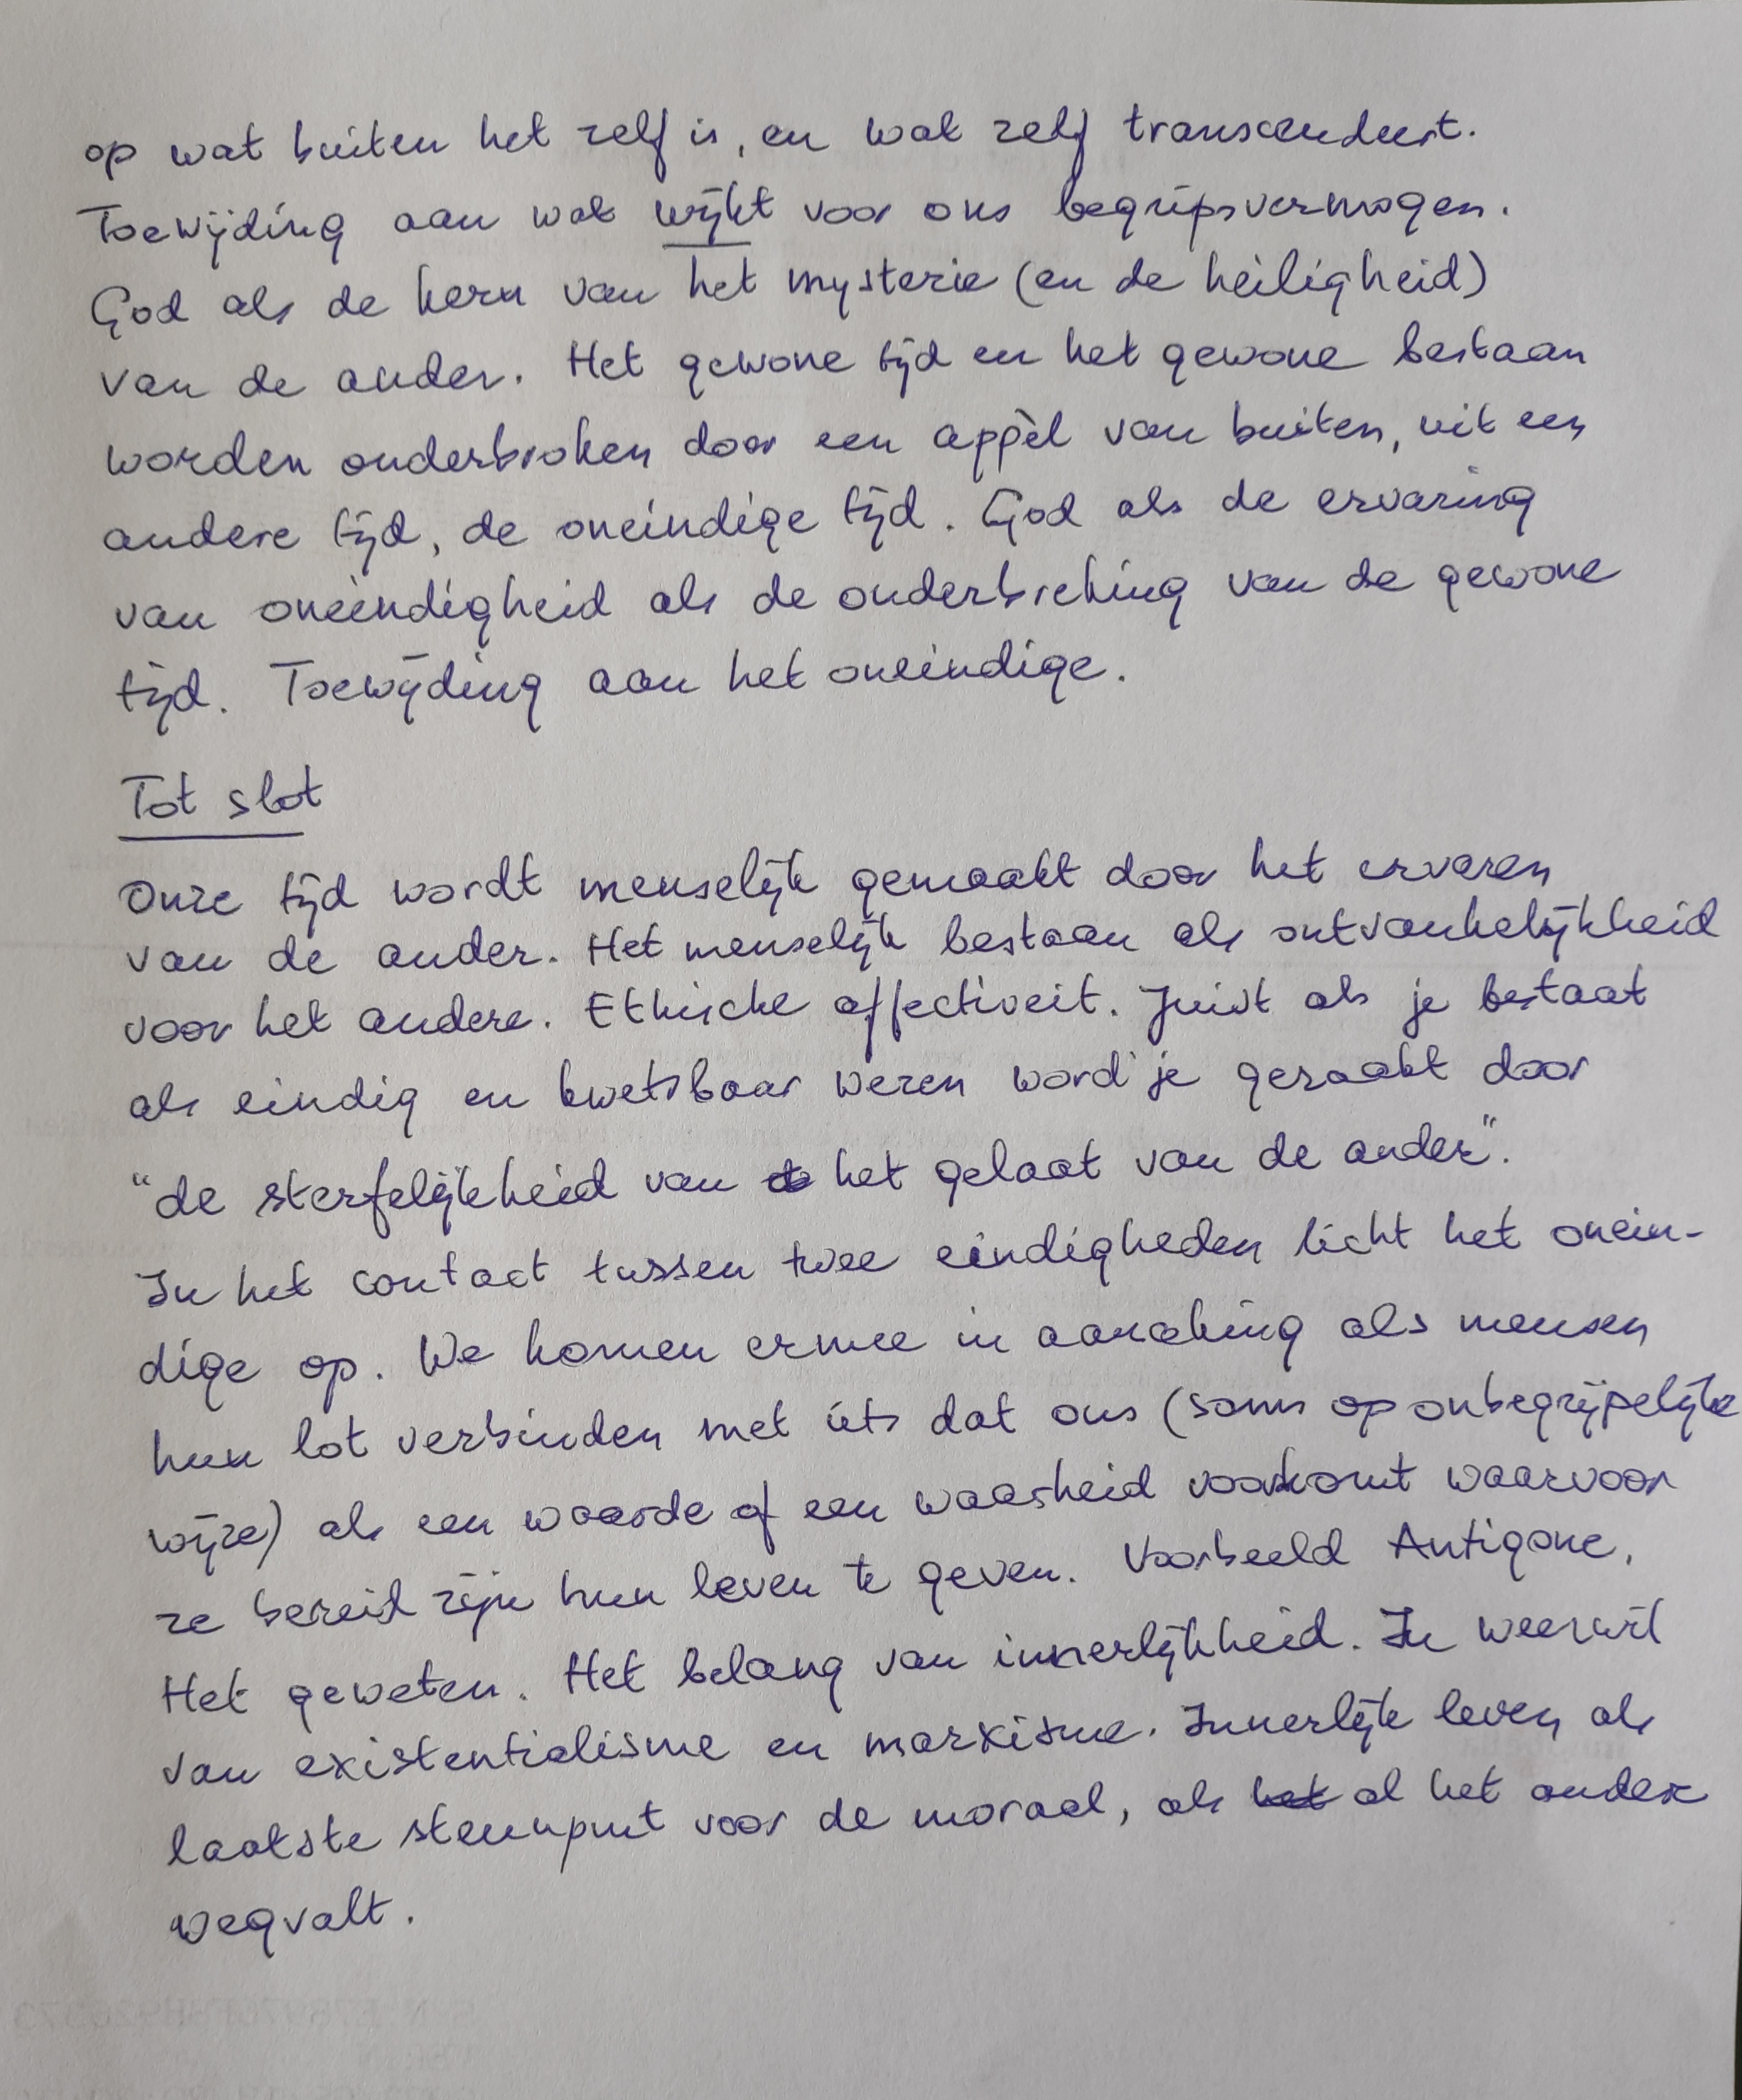 op wat buiten het zelf is, en wat zelf transcendeert.
Toewijding aan wat wijkt voor ons begripsvermogen.
God als de kern van het mysterie (en de heiligheid)
van de ander. Het gewone tijd en het gewone bestaan
worden onderbroken door een appèl van buiten, uit een
andere tijd, de oneindige tijd. God als de ervaring
van oneindigheid als de onderbreking van de gewone
tijd. Toewijding aan het oneindige.
Tot slot
Onze tijd wordt menselijk gemaakt door het ervaren
van de ander. Het menselijk bestaan als ontvankelijkheid
voor het andere. Ethische affectiveit. Juist als je bestaat
als eindig en kwetsbaar wezen word je geraakt door
"de sterfelijkheid van het gelaat van de ander".
In het contact tussen twee eindigheden licht het onein-
dige op. We komen ermee in aanraking als mensen
hun lot verbinden met iets dat ons (soms op onbegrijpelijke
wijze) als een waarde of een waarheid voorkomt waarvoor
ze bereid zijn hun leven te geven. Voorbeeld Antigone.
Het geweten. Het belang van innerlijkheid. In weerwil
van existentialisme en marxisme. Innerlijk leven als
laatste steunpunt voor de moraal, als het al het andere
wegvalt.